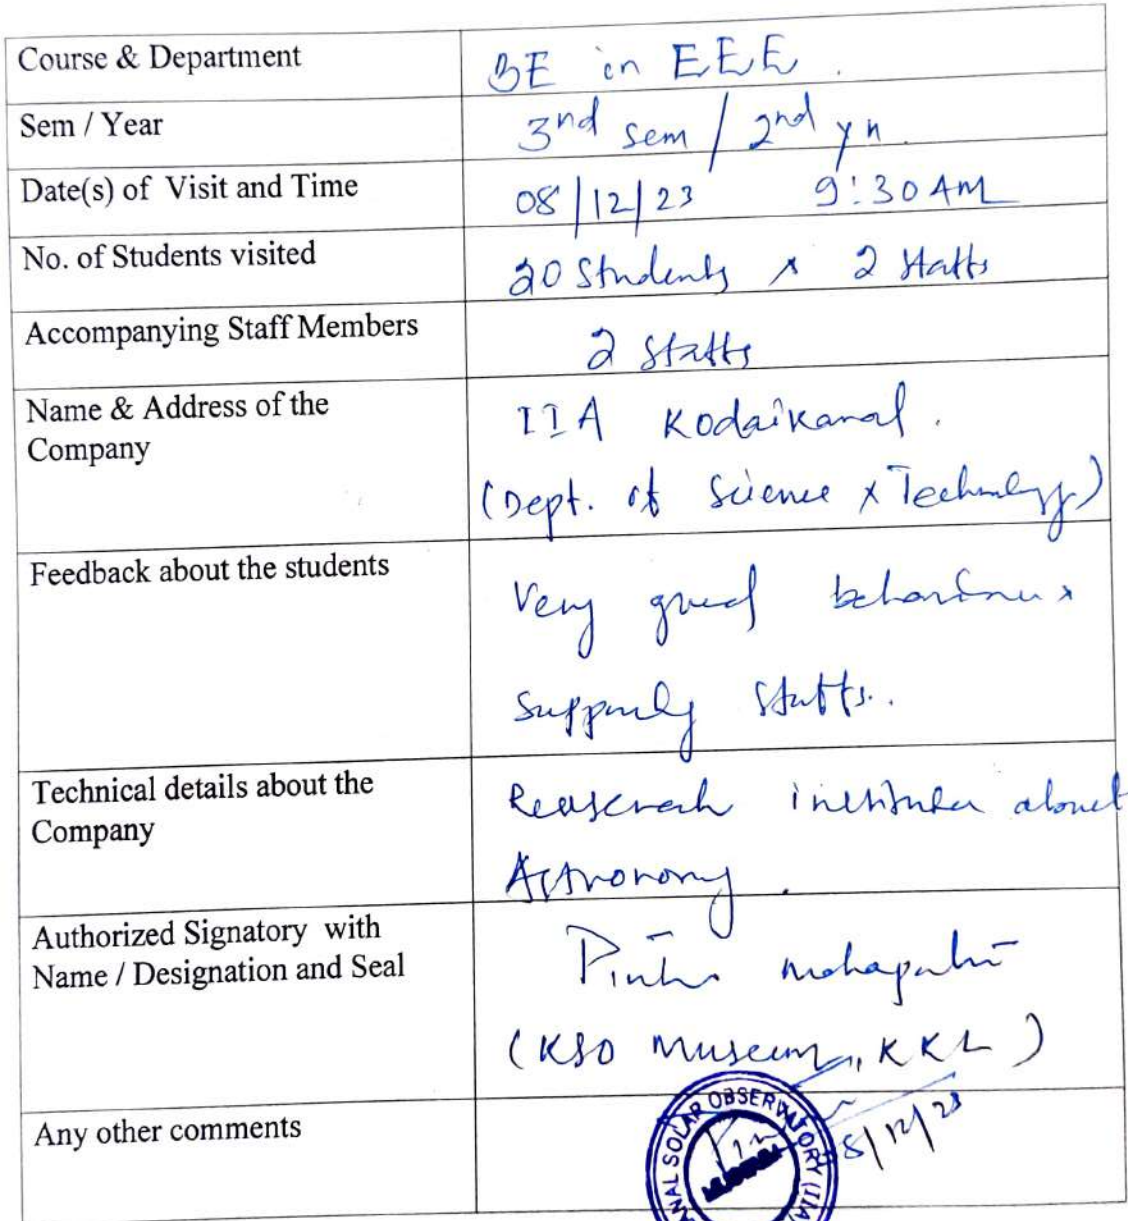 Course & Department
BE in EEE.
Sem / Year
3nd sem / 2nd yr
Date(s) of Visit and Time
08/12/23 9:30 AM
No. of Students visited
20 Students & 2 Staffs
Accompanying Staff Members
2 Staffs
Name & Address of the
Company
IIA Kodaikanal.
(Dept. of Science & Technology)
Feedback about the students
Very good behaviour &
Staffs.
Technical details about the
Company
about
Astronomy.
Authorized Signatory with
Name / Designation and Seal
(KSO Museum, KKL)
Any other comments
SOLAR OBSERVATORY (IIA)
8/12/23